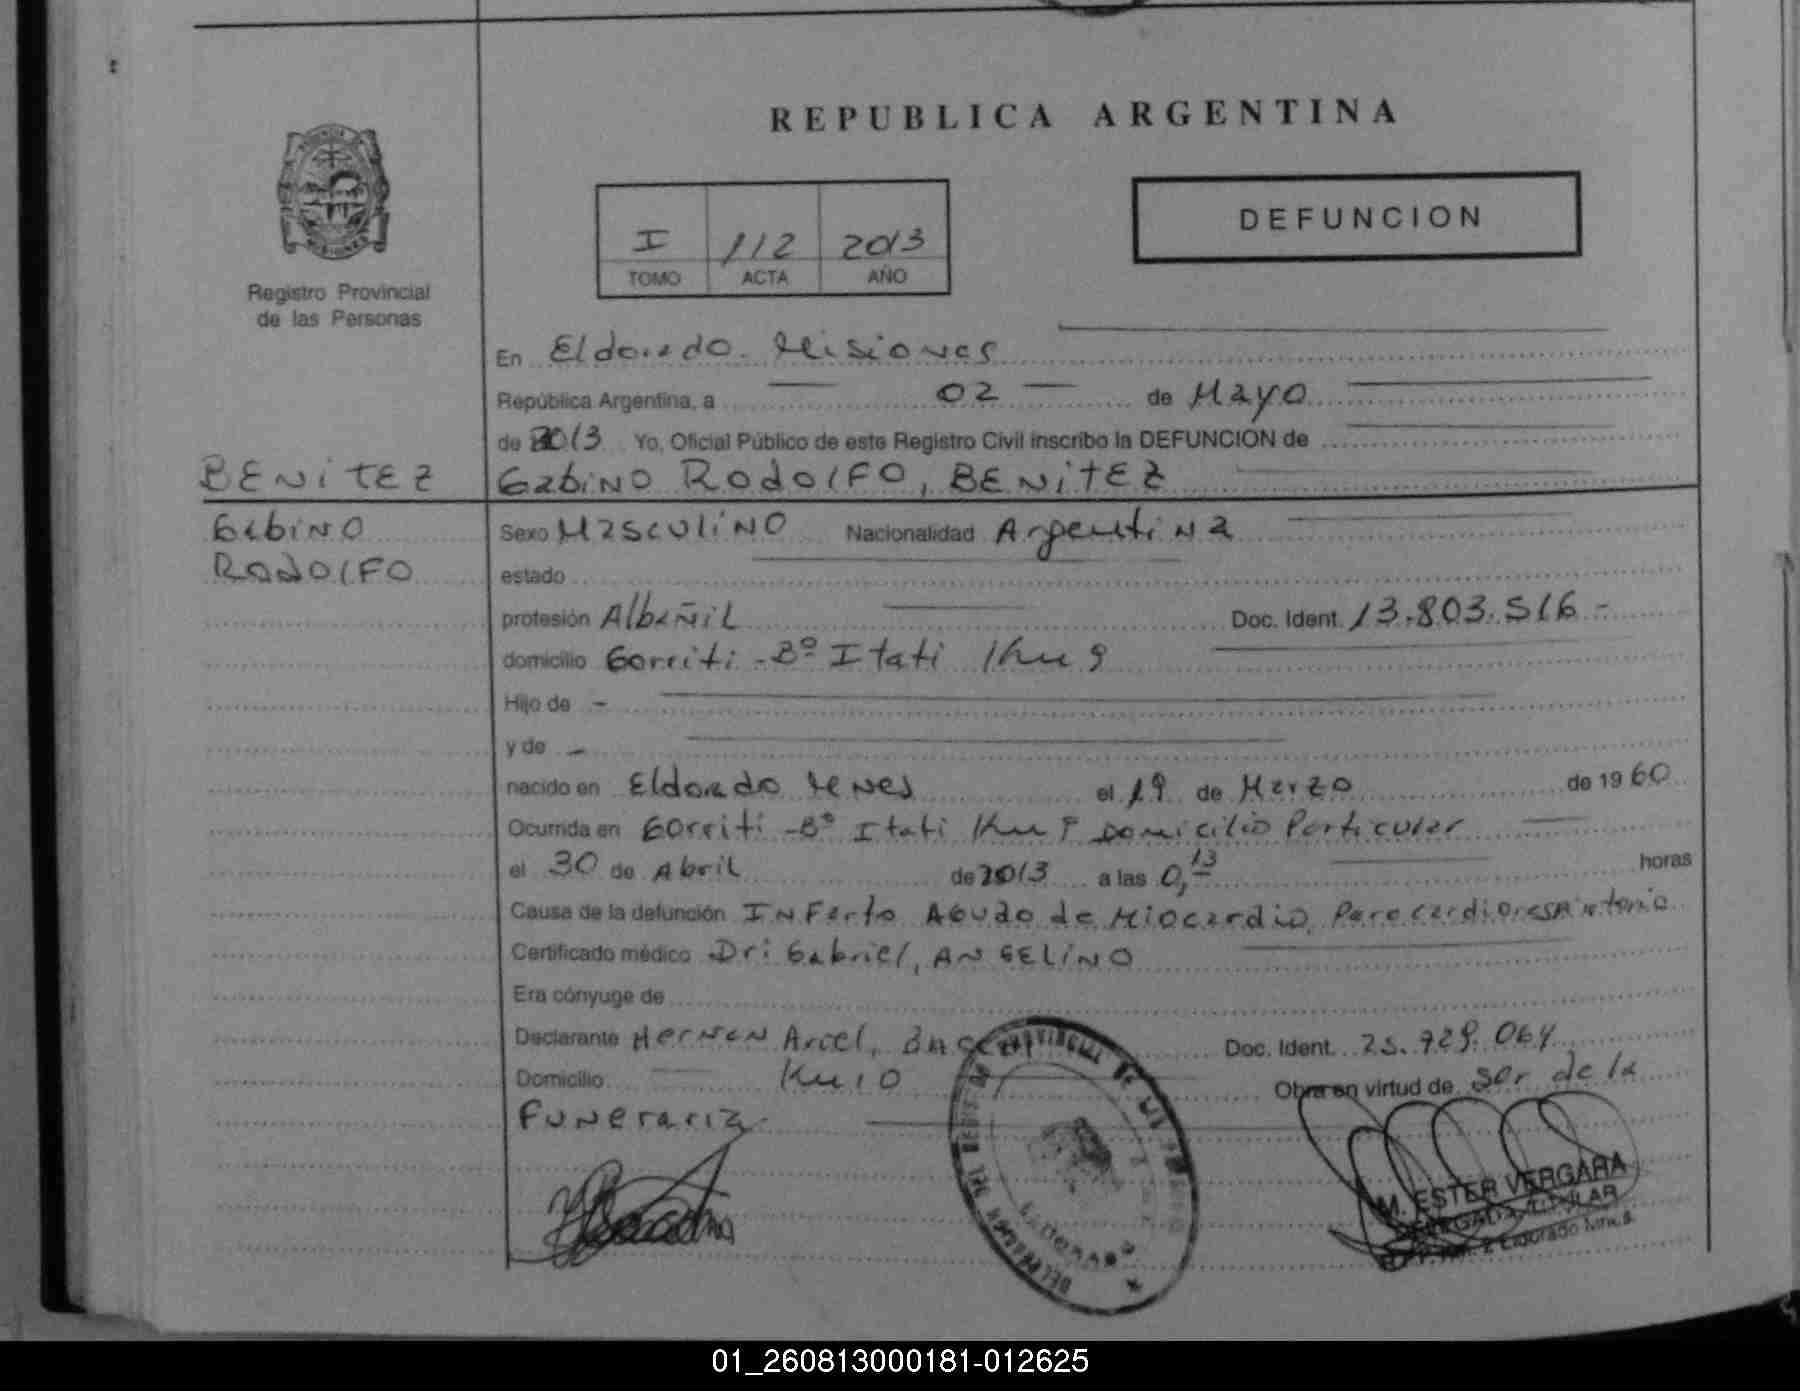 REPUBLICA ARGENTINA
DEFUNCION
I 112 2013
TOMO ACTA AÑO
Registro Provincial
de las Personas
En Eldorado Misiones
República Argentina, a 02 de Mayo
de 2013 Yo, Oficial Público de este Registro Civil inscribo la DEFUNCION de
BENITEZ
Gabino Rodolfo, BENITEZ
Gabino
Rodolfo
Sexo Masculino Nacionalidad Argentina
estado
profesión Albañil Doc. Ident. 13.803.516-
domicilio Gorriti - Bº Itati Km 9
Hijo de -
y de -
nacido en Eldorado Mnes el 19 de Marzo de 1960
Ocurrida en Gorriti - Bº Itati Km 9 Domicilio Particular
el 30 de Abril de 2013 a las 0,13 horas
Causa de la defunción Infarto Agudo de Miocardio, Paro cardiorespiratorio
Certificado médico Dr: Gabriel, ANGELINO
Era cónyuge de
Declarante Hernan Ariel, Doc. Ident. 25.729.064
Domicilio Km 10 Obra en virtud de Ser de la
Funeraria
PROVINCIAL DE LAS
ELDORADO
M. ESTER VERGARA
DELEGADA TITULAR
2 Eldorado Mnes.
01_260813000181-012625